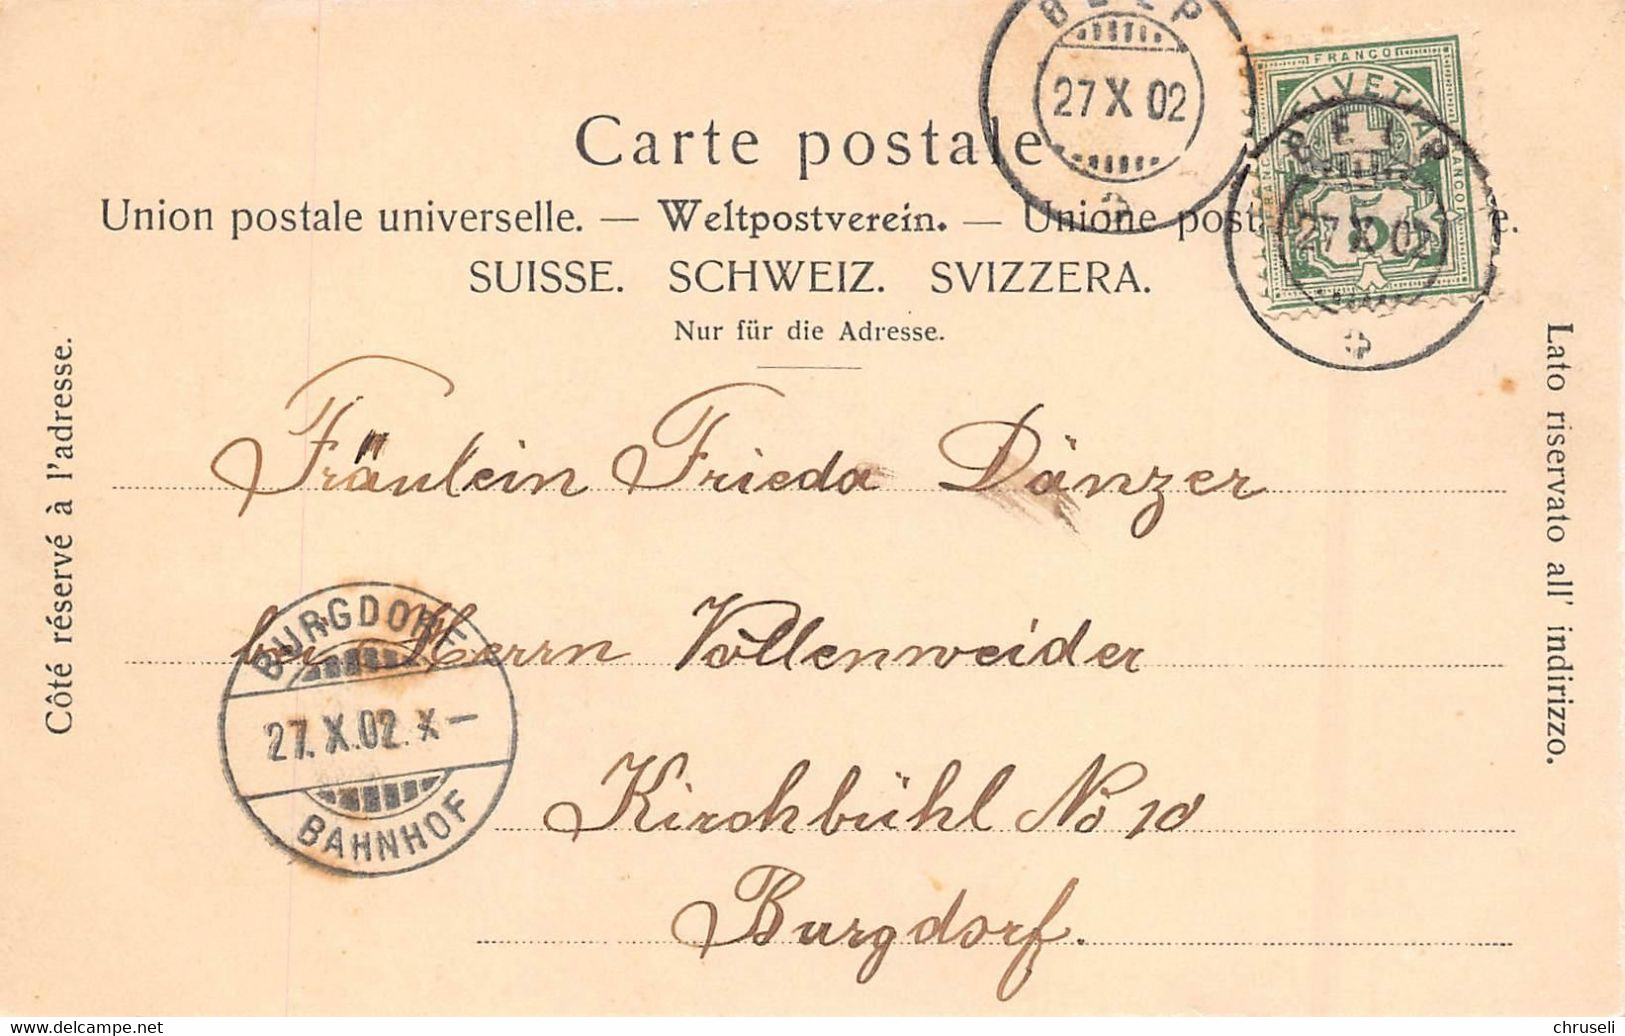 BELP
27 X 02
FRANCO
HELVETIA
FRANCO
FRANCO
5
BELP
27 X 02
Carte postale
Union postale universelle. — Weltpostverein. — Unione post e.
SUISSE. SCHWEIZ. SVIZZERA.
Nur für die Adresse.
Côté réservé à l'adresse.
Lato riservato all' indirizzo.
Fräulein Frieda Dänzer
bei Herrn Vollenweider
Kirchbühl No 10
Burgdorf.
BURGDORF
27. X. 02. X —
BAHNHOF
www.delcampe.net
chruseli